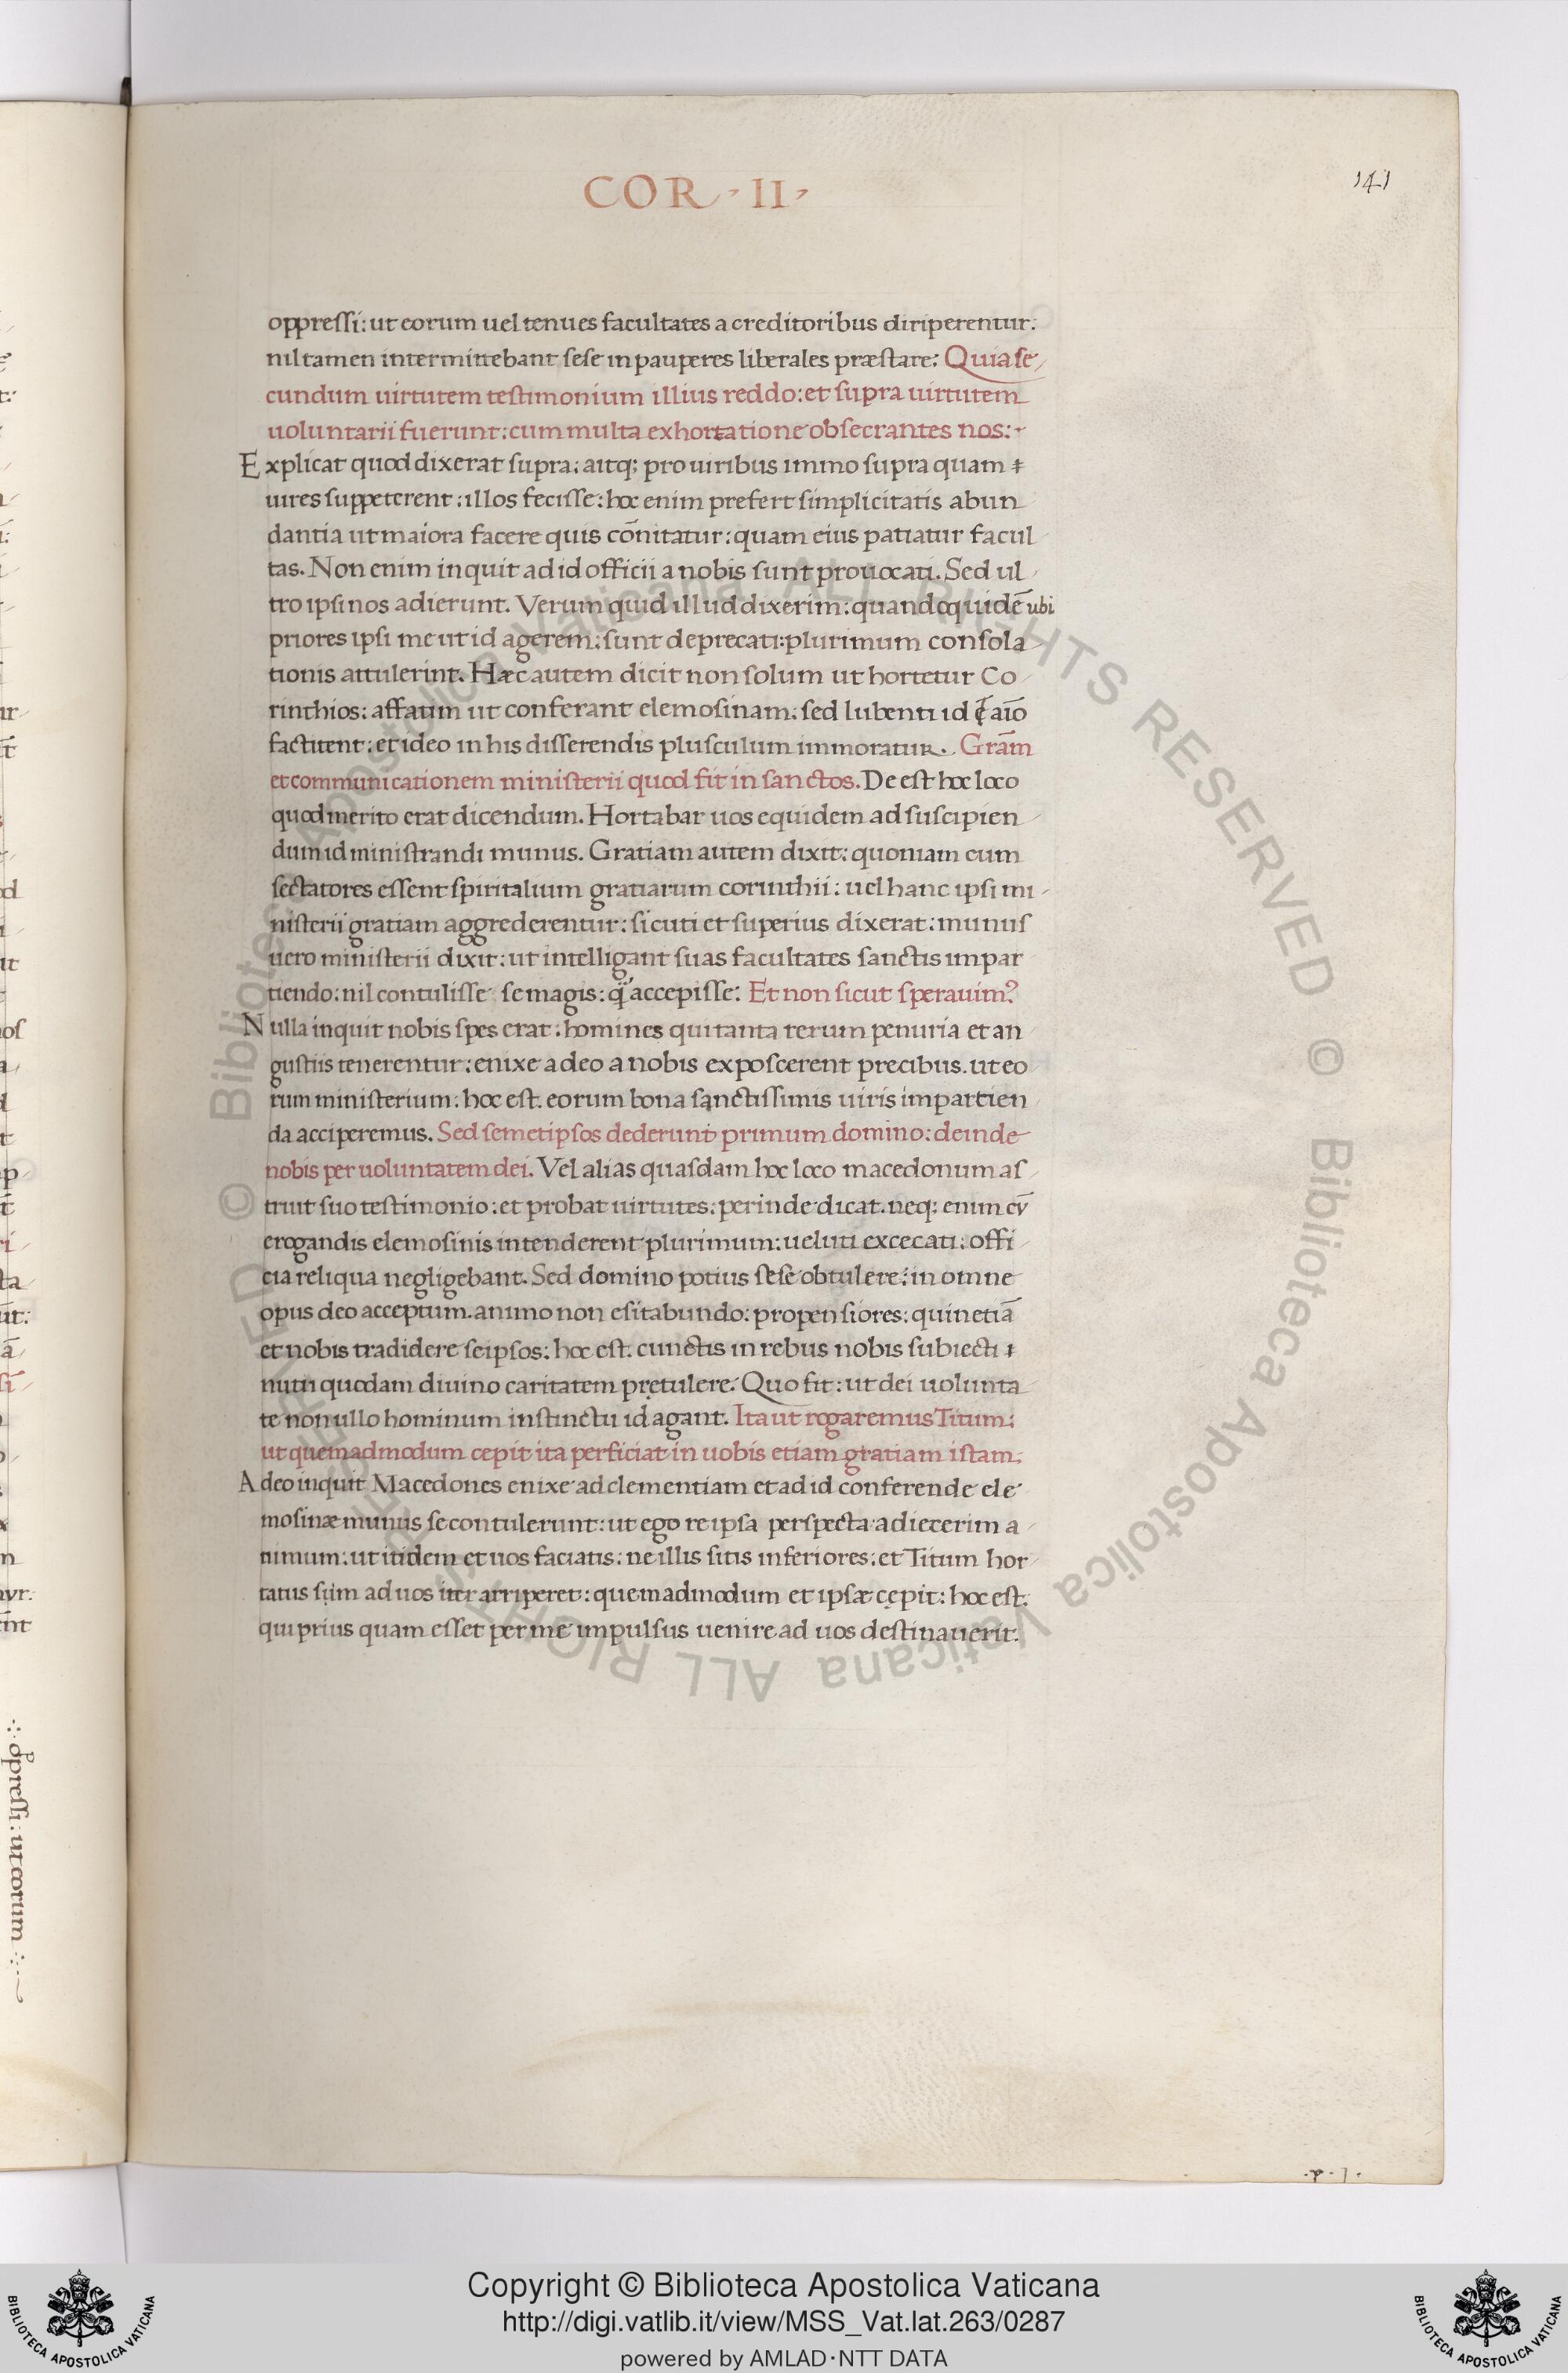 COR · II ·
141
oppressi: ut eorum uel tenues facultates a creditoribus diriperentur:
nil tamen intermittebant sese in pauperes liberales præstare: Quia se
cundum uirtutem testimonium illius reddo: et supra uirtutem
uoluntarii fuerunt: cum multa exhortatione obsecrantes nos:
Explicat quod dixerat supra: aitq; pro uiribus immo supra quam
uires suppeterent: illos fecisse: hoc enim prefert simplicitatis abun
dantia ut maiora facere quis cōnitatur: quam eius patiatur facul
tas. Non enim inquit ad id officii a nobis sunt prouocati. Sed ul
tro ipsi nos adierunt. Verum quid illud dixerim: quandoquidē ubi
priores ipsi me ut id agerem: sunt deprecati: plurimum consola
tionis attulerint. Hæc autem dicit non solum ut hortetur Co
rinthios: affatim ut conferant elemosinam: sed lubenti id aīo
factitent: et ideo in his disserendis plusculum immoratur. Gram̄
et communicationem ministerii quod fit in sanctos. De est hoc loco
quod merito erat dicendum. Hortabar uos equidem ad suscipien
dum id ministrandi munus. Gratiam autem dixit: quoniam cum
sectatores essent spiritalium gratiarum corinthii: uel hanc ipsi mi
nisterii gratiam aggrederentur: sicuti et superius dixerat: munus
uero ministerii dixit: ut intelligant suas facultates sanctis impar
tiendo: nil contulisse se magis: q̄ accepisse: Et non sicut sperauim?
Nulla inquit nobis spes erat: homines qui tanta rerum penuria et an
gustiis tenerentur: enixe adeo a nobis exposcerent precibus. ut eo
rum ministerium: hoc est. eorum bona sanctissimis uiris impartien
da acciperemus. Sed semetipsos dederunt primum domino: deinde
nobis per uoluntatem dei. Vel alias quasdam hoc loco macedonum as
truit suo testimonio: et probat uirtutes: perinde dicat. neq; enim cū
erogandis elemosinis intenderent plurimum: ueluti excecati: offi
cia reliqua negligebant. Sed domino potius sese obtulere: in omne
opus deo acceptum. animo non esitabundo: propensiores: quin etiā
et nobis tradidere seipsos: hoc est. cunctis in rebus nobis subiecti
nutu quodam diuino caritatem prętulere. Quo fit: ut dei uolunta
te non ullo hominum instinctu id agant. Ita ut rogaremus Titum:
ut quemadmodum cepit ita perficiat in uobis etiam gratiam istam:
Adeo inquit Macedones enixe ad clementiam et ad id conferende ele
mosinæ munus se contulerunt: ut ego re ipsa perspecta adiecerim a
nimum: ut itidem et uos faciatis: ne illis sitis inferiores: et Titum hor
tatus sum ad uos iter arriperet: quemadmodum et ipsæ cępit: hoc est.
qui prius quam esset per me impulsus uenire ad uos destinauerit.
oppressi: ut eorum
Copyright © Biblioteca Apostolica Vaticana
http://digi.vatlib.it/view/MSS_Vat.lat.263/0287
powered by AMLAD·NTT DATA
BIBLIOTECA APOSTOLICA VATICANA
BIBLIOTECA APOSTOLICA VATICANA